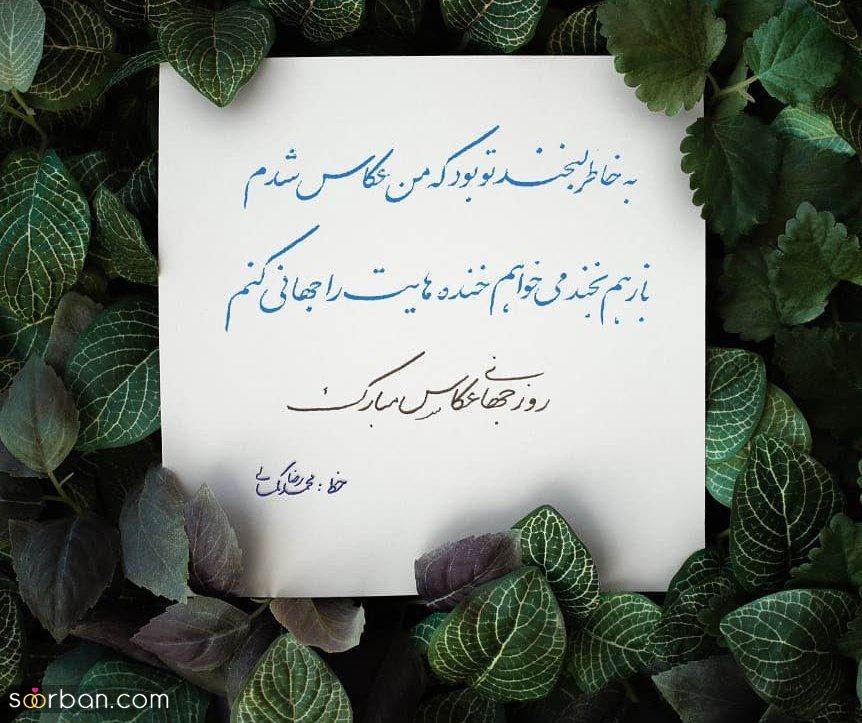 به خاطر لبخند تو بود که من عکاس شدم
باز هم بخند می خواهم خنده هایت را جهانی کنم
روز جهانی عکاس مبارک
خط : محمدرضا کمالی
soorban.com